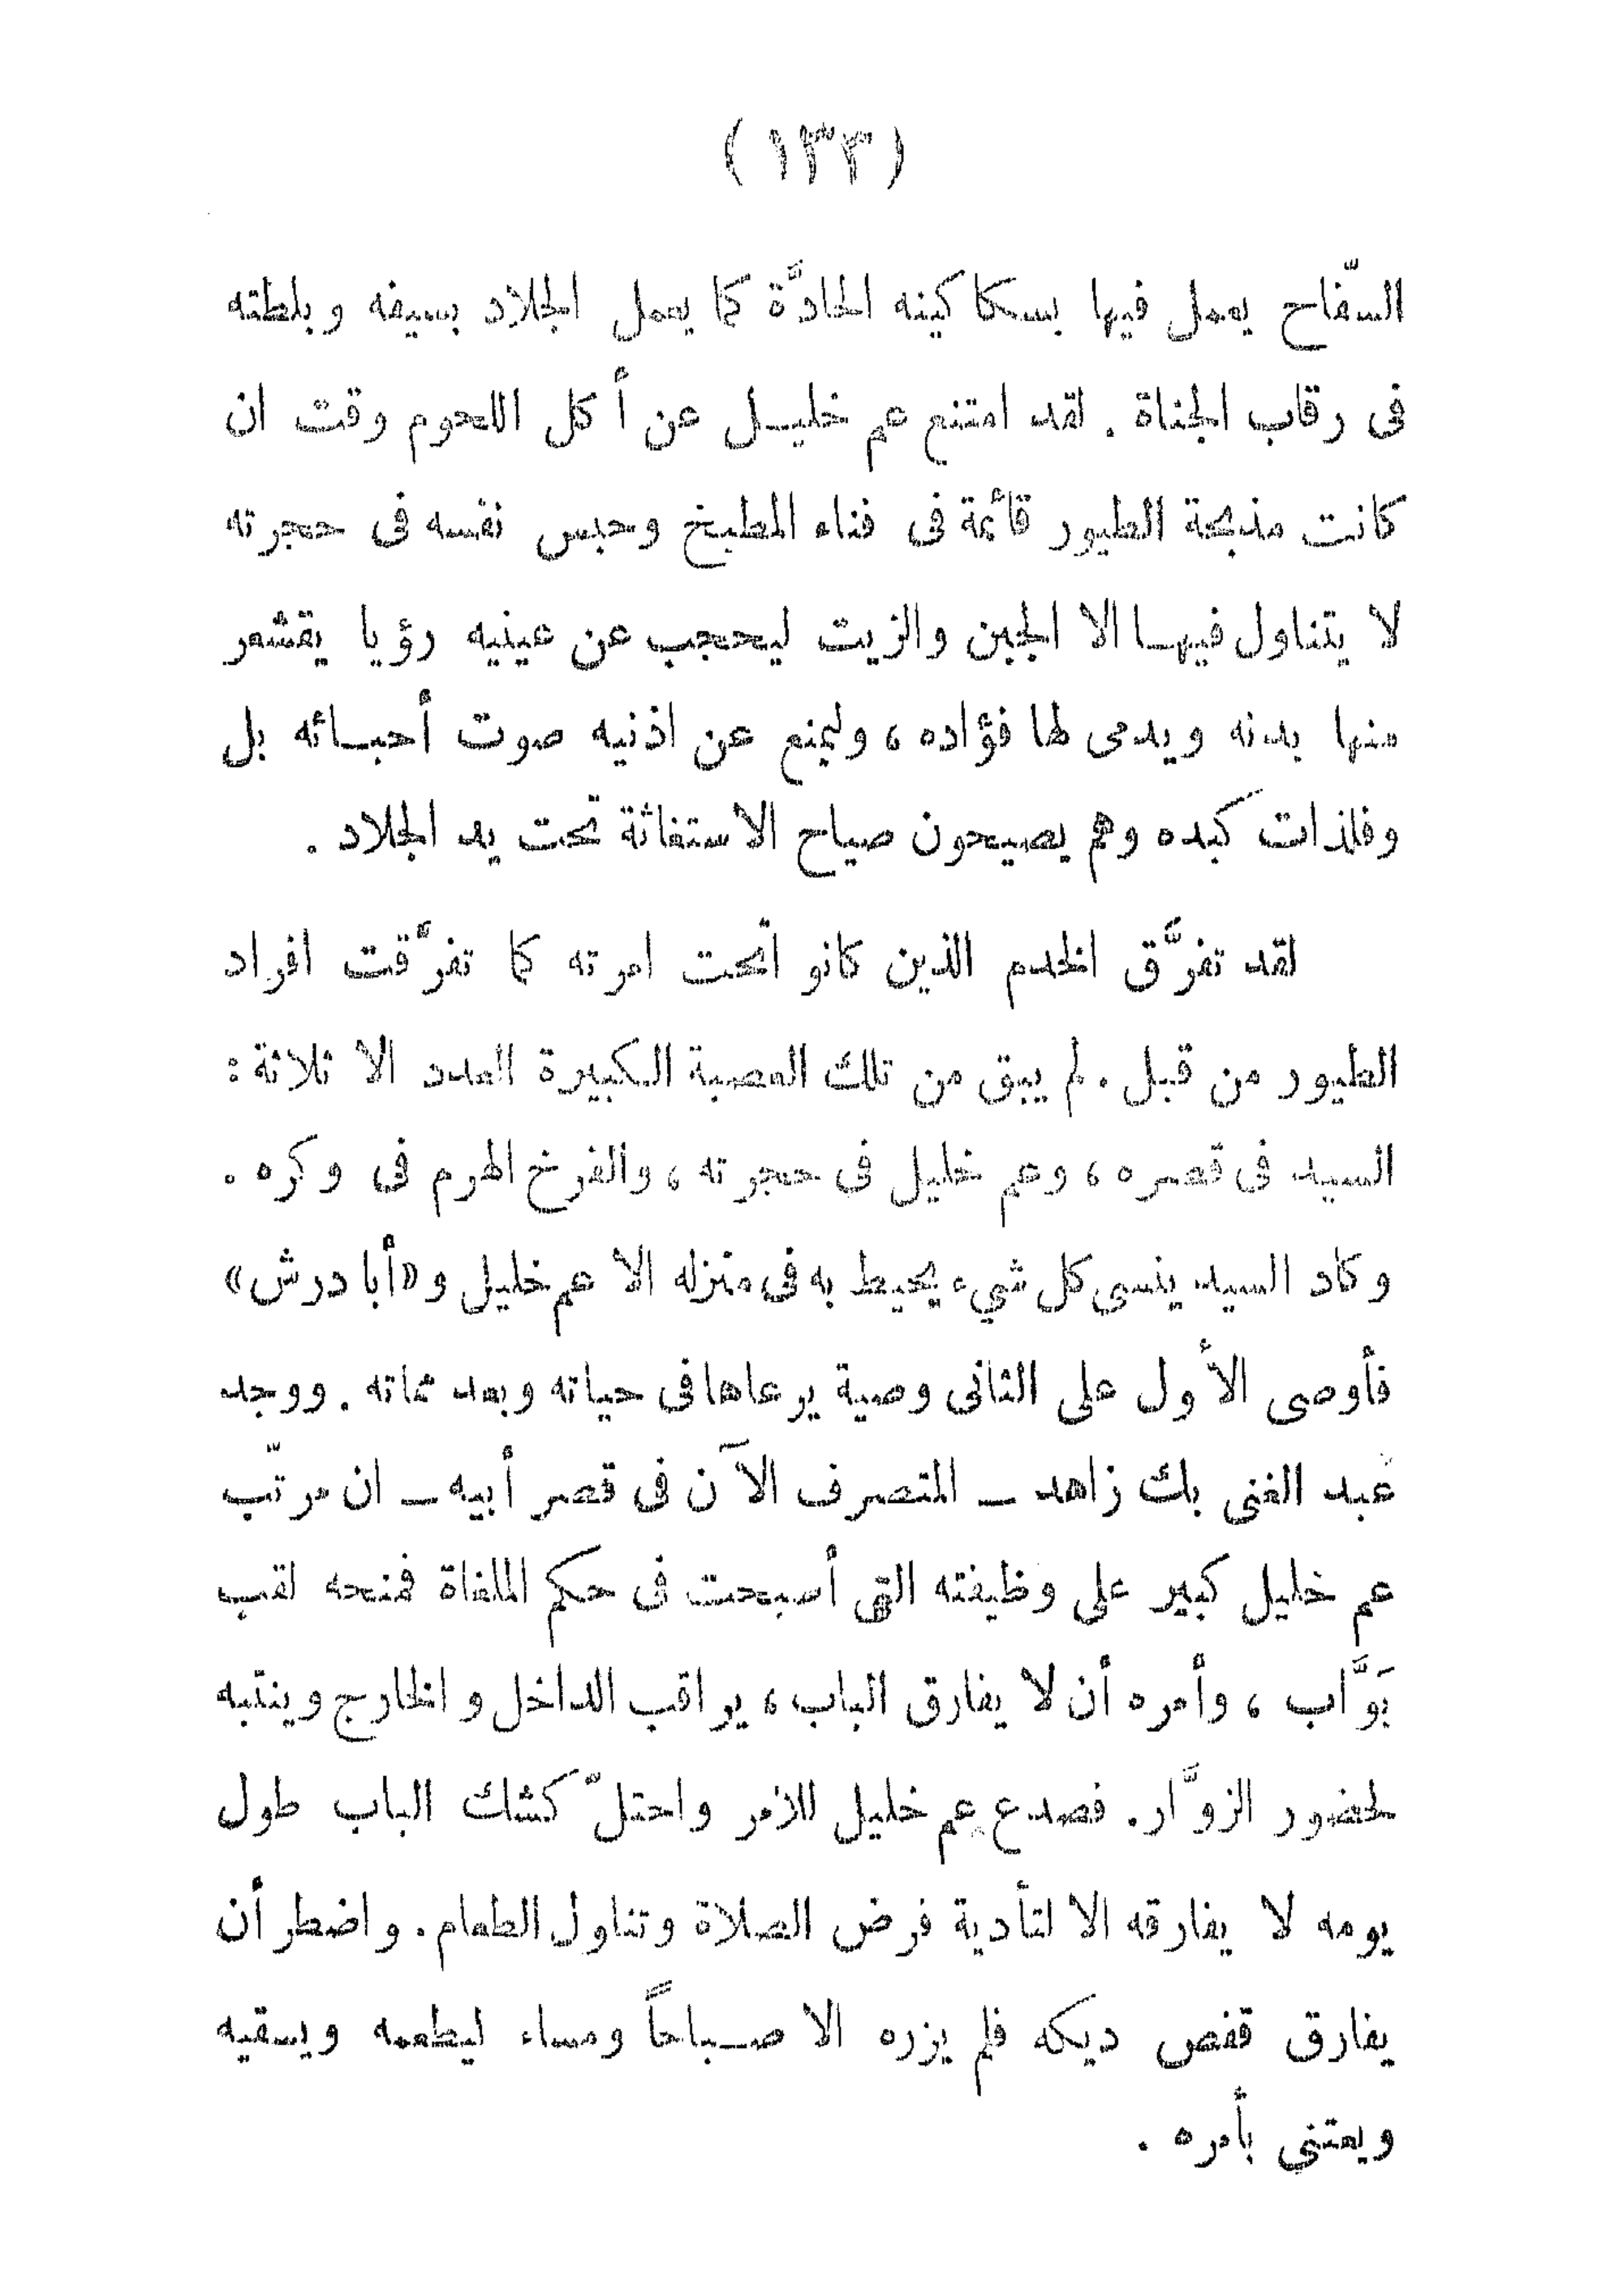 (١٣٣)
السفّاح يعمل فيها بسكاكينه الحادَّة كما يعمل الجلاد بسيفه وبلطته
فى رقاب الجناة . لقد امتنع عم خليل عن أكل اللحوم وقت ان
كانت مذبحة الطيور قائمة فى فناء المطبخ وحبس نفسه فى حجرته
لا يتناول فيها الا الجبن والزيت ليحجب عن عينيه رؤيا يقشعر
منها بدنه ويدمى لها فؤاده ، وليمنع عن اذنيه صوت أحبائه بل
وفلذات كبده وهم يصيحون صياح الاستغاثة تحت يد الجلاد .
لقد تفرَّق الخدم الذين كانو اتحت امرته كما تفرَّقت افراد
الطيور من قبل . لم يبق من تلك العصبة الكبيرة العدد الا ثلاثة :
السيد فى قصره ، وعم خليل فى حجرته ، والفرخ الهرم فى وكره .
وكاد السيد ينسى كل شيء يحيط به فى منزله الا عم خليل و«أبا درش»
فأوصى الأول على الثانى وصية يرعاها فى حياته وبعد مماته . ووجد
عبد الغنى بك زاهد ــ المتصرف الآن فى قصر أبيه ــ ان مرتّب
عم خليل كبير على وظيفته التى أصبحت فى حكم الملغاة فمنحه لقب
بَوَّاب ، وأمره أن لا يفارق الباب ، يراقب الداخل والخارج وينتبه
لحضور الزوَّار . فصدع عم خليل للامر واحتلّ كشك الباب طول
يومه لا يفارقه الا لتأدية فرض الصلاة وتناول الطعام . واضطر أن
يفارق قفص ديكه فلم يزره الا صباحاً ومساء ليطعمه ويسقيه
ويعتنى بأمره .